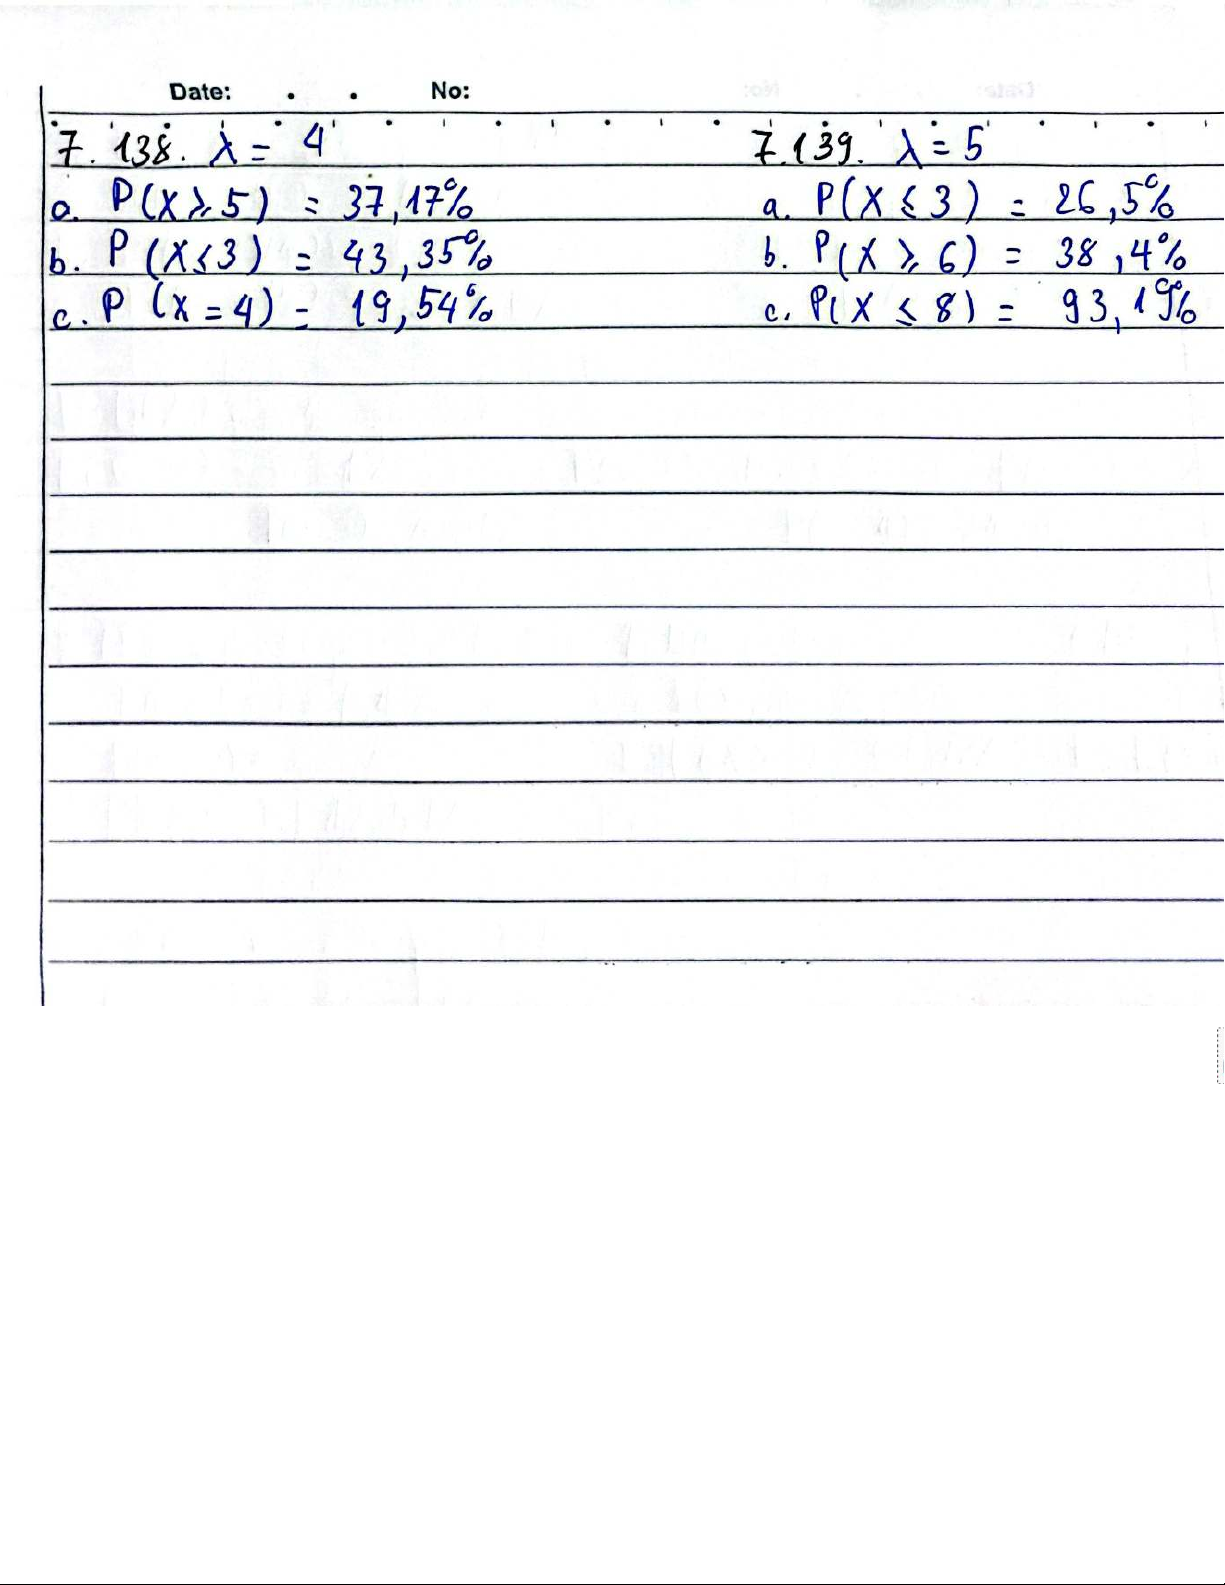 Date: . . No:
7.138. λ = 4
a. P(X ≥ 5) = 37,17%
b. P(X ≤ 3) = 43,35%
c. P(x = 4) = 19,54%
7.139. λ = 5
a. P(X ≤ 3) = 26,5%
b. P(X ≥ 6) = 38,4%
c. P(X ≤ 8) = 93,19%